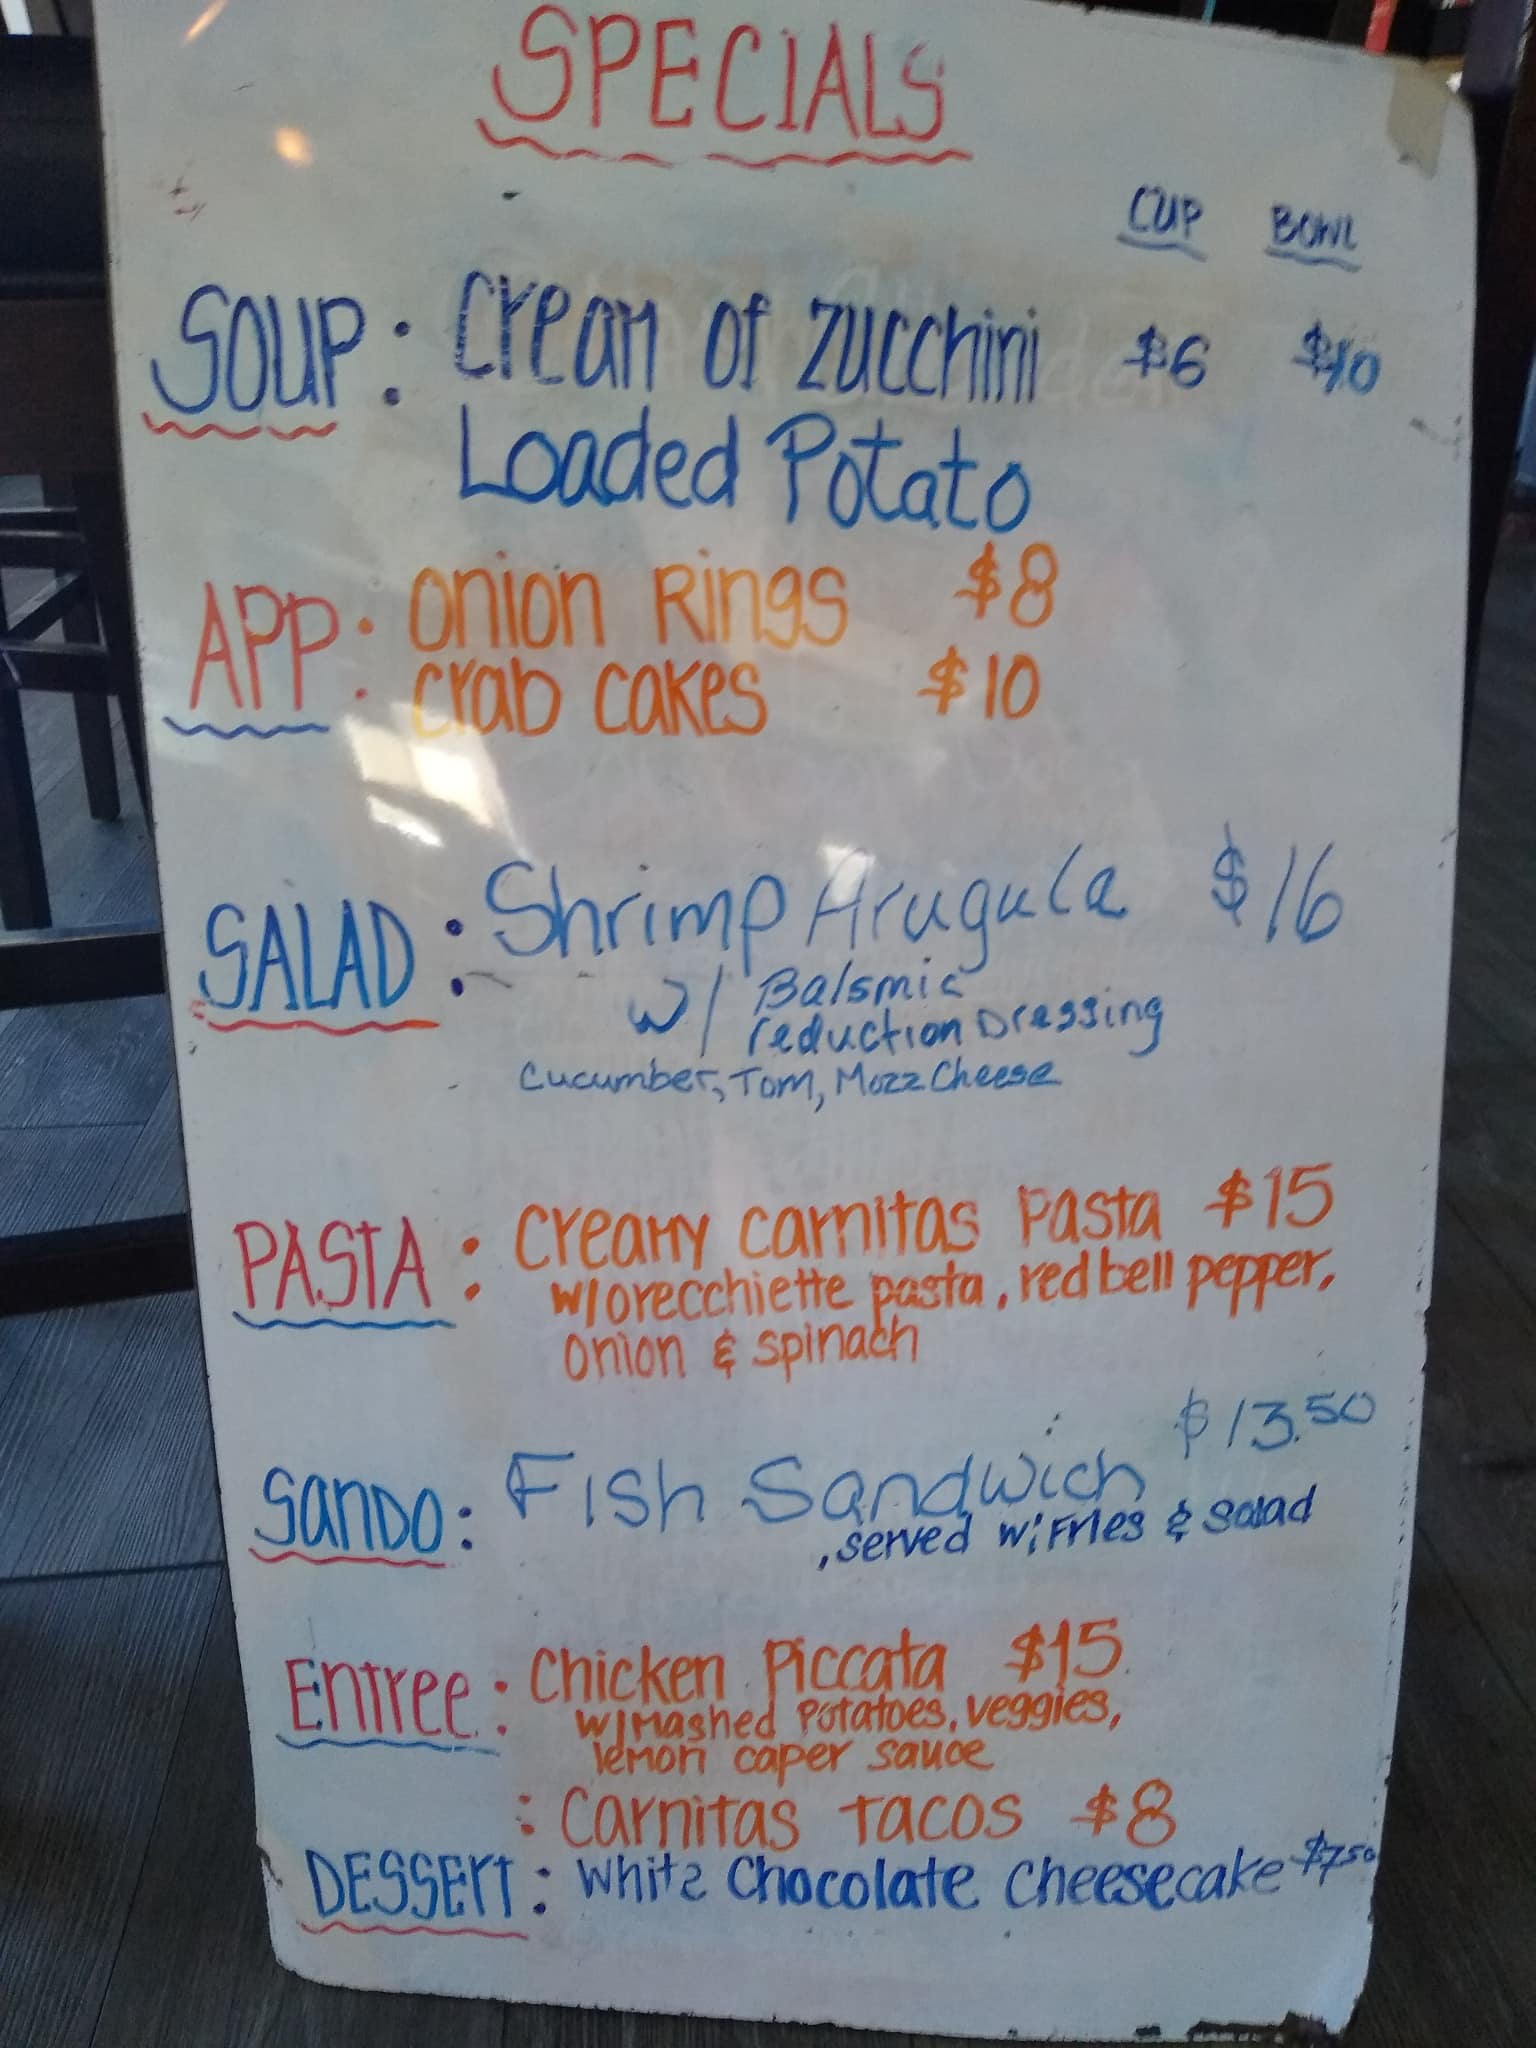 SPECIALS
CUP BOWL
SOUP: Cream of Zucchini $6 $10
Loaded Potato
APP: Onion Rings $8
Crab Cakes $10
SALAD: Shrimp Arugula $16
w/ Balsmic
reduction Dressing
Cucumber, Tom, Mozz Cheese
PASTA: Creamy Carnitas Pasta $15
w/orecchiette pasta, red bell pepper,
Onion & spinach
$13.50
SANDO: Fish Sandwich
, served w/ Fries & Salad
ENTREE: Chicken Piccata $15
w/Mashed Potatoes, veggies,
lemon caper sauce
: Carnitas Tacos $8
DESSERT: White Chocolate Cheesecake $7.50